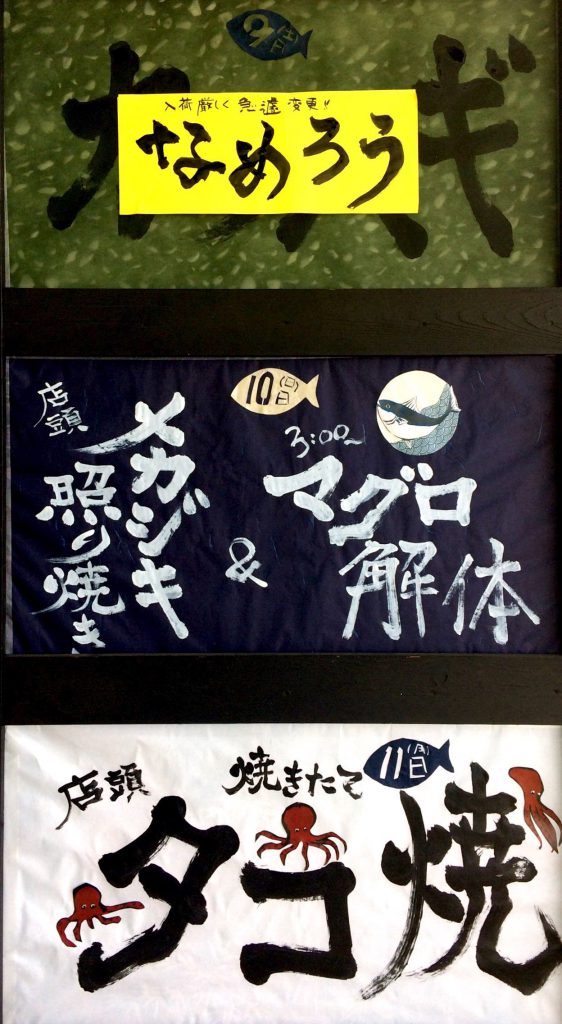 9日(土)
入荷厳しく急遽変更!!
なめろう
カ
ギ
10日(日)
3:00～
マグロ
解体
&
店頭
メカジキ
照り焼き
11日(月)
店頭
焼きたて
タコ焼